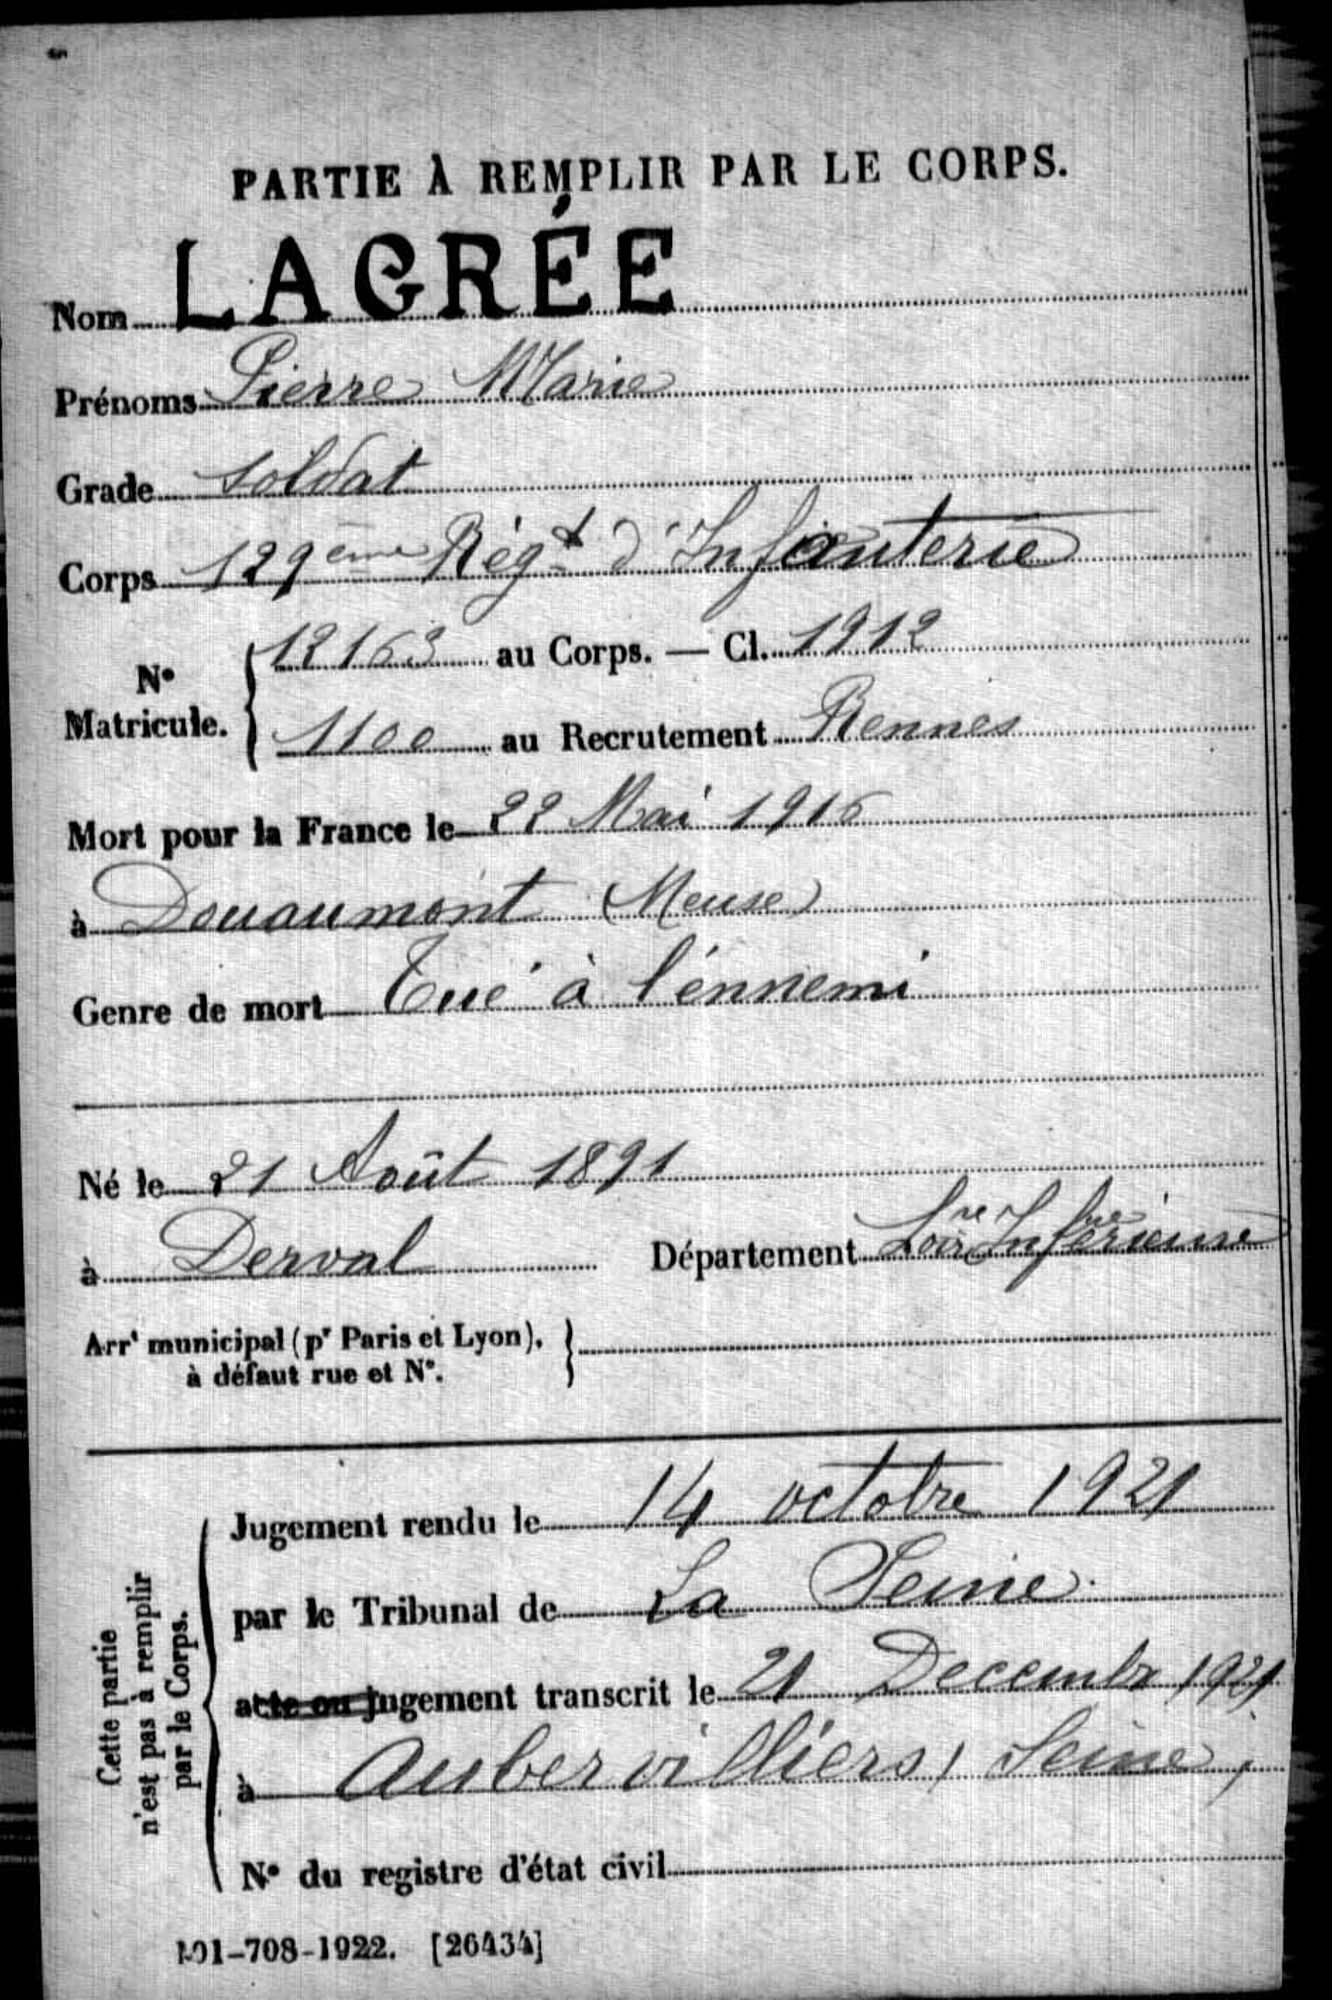 PARTIE À REMPLIR PAR LE CORPS.
Nom LAGRÉE
Prénoms Pierre Marie
Grade Soldat
Corps 129ème Régt d'Infanterie
N° Matricule. { 12163 au Corps. — Cl. 1912
1100 au Recrutement Rennes
Mort pour la France le 22 Mai 1916
à Douaumont (Meuse)
Genre de mort Tué à l'énnemi
Né le 21 Août 1891
à Derval Département Loire Inférieure
Arrt municipal (pr Paris et Lyon), }
à défaut rue et N°.
Cette partie
n'est pas à remplir
par le Corps.
Jugement rendu le 14 octobre 1921
par le Tribunal de La Seine
acte ou jugement transcrit le 21 Decembr 1921
à Aubervilliers, Seine,
N° du registre d'état civil
101-708-1922. [26434]